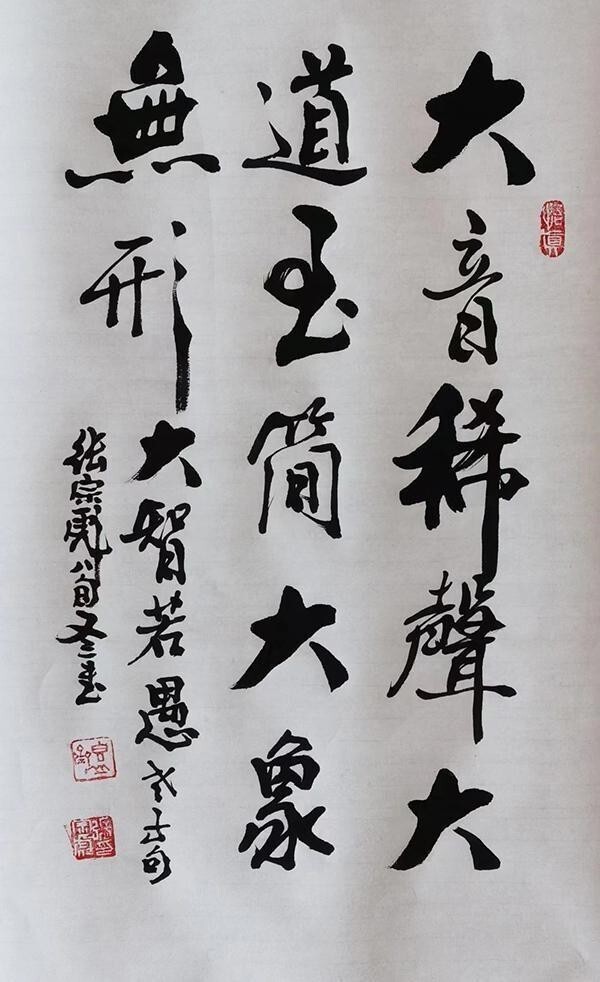 大音稀聲大
道至简大象
無形
大智若愚老子句
张宗彪八旬又三书